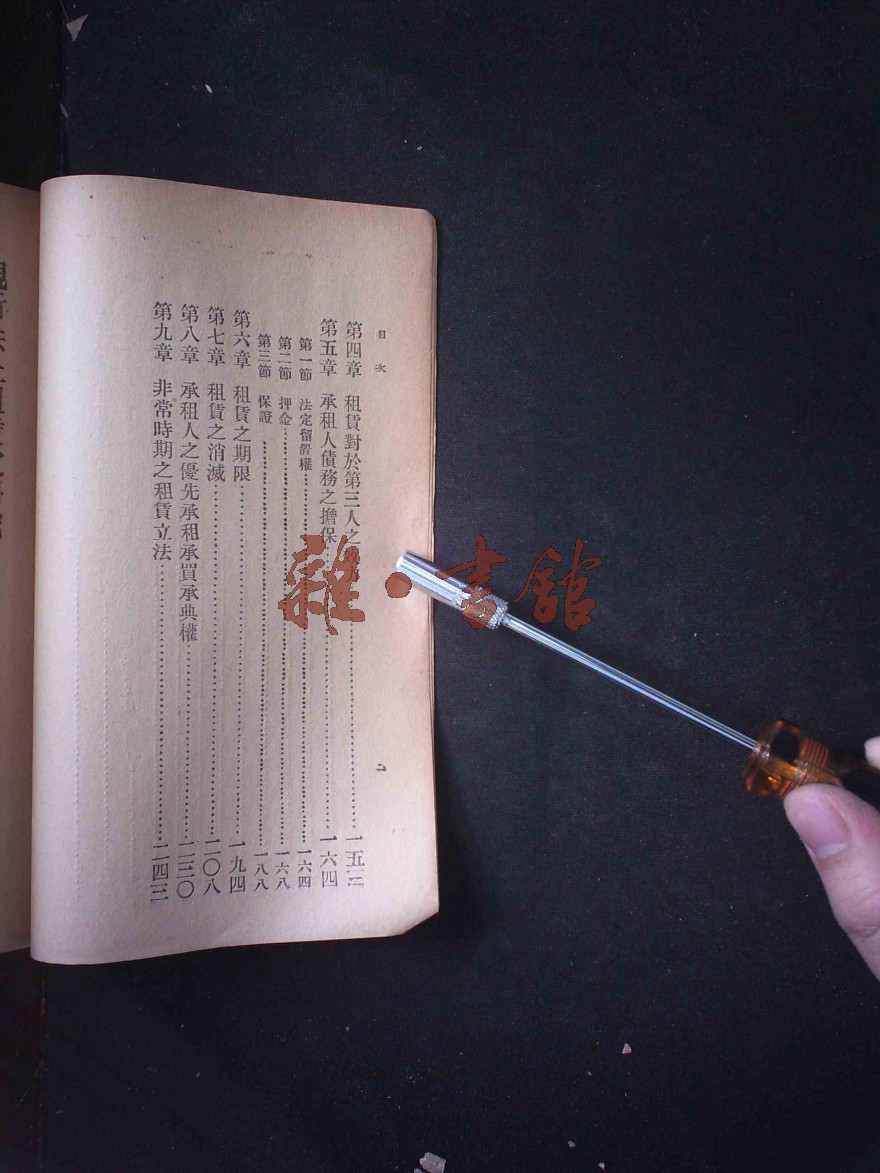 目次
第四章 租賃對於第三人之……一五三
第五章 承租人債務之擔保……一六四
第一節 法定留置權……一六四
第二節 押金……一六八
第三節 保證……一八八
第六章 租賃之期限……一九四
第七章 租賃之消滅……二〇八
第八章 承租人之優先承租承買承典權……二三〇
第九章 非常時期之租賃立法……二四三
雜·書館